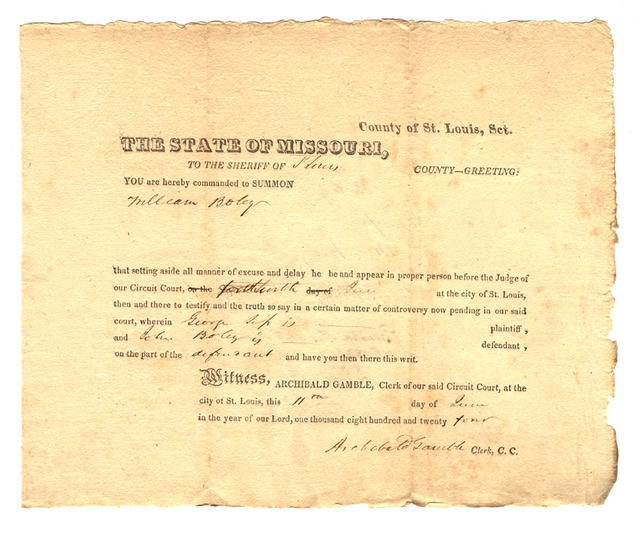 County of St. Louis, Sct.
THE STATE OF MISSOURI,
TO THE SHERIFF OF St Louis COUNTY—GREETING:
YOU are hereby commanded to SUMMON
William Boley
that setting aside all manner of excuse and delay he be and appear in proper person before the Judge of
our Circuit Court, on the forthwith day of at the city of St. Louis,
then and there to testify and the truth so say in a certain matter of controversy now pending in our said
court, wherein George is plaintiff,
and John Boley is defendant,
on the part of the defendant and have you then there this writ.
Witness, ARCHIBALD GAMBLE, Clerk of our said Circuit Court, at the
city of St. Louis, this 11th day of June
in the year of our Lord, one thousand eight hundred and twenty four
Archibald Gamble Clerk, C. C.